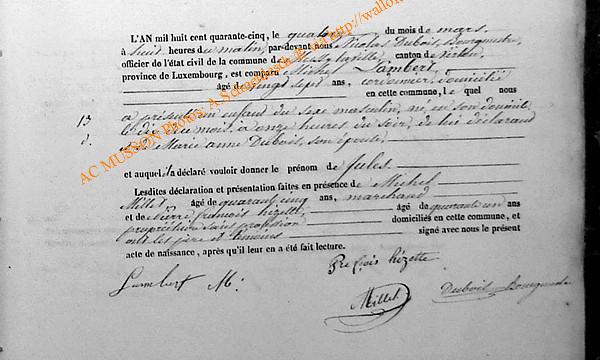 L'AN mil huit cent quarante-cinq, le quatorze du mois de mars
à huit heures du matin, par-devant nous Nicolas Dubois, Bourgmestre,
officier de l'état civil de la commune de Mussy-la-ville, canton de Virton,
province de Luxembourg, est comparu Michel Lambert,
âgé de vingt sept ans, cordonnier, domicilié
en cette commune, le quel nous
13
d.
a présenté un enfant du sexe masculin, né en son domicile
le dix du mois à onze heures du soir, de lui déclarant
et de Marie anne Dubois, son épouse,
et auquel il a déclaré vouloir donner le prénom de Jules.
Lesdites déclaration et présentation faites en présence de Michel
Millet, âgé de quarante cinq ans, marchand
et de Pierre françois hizette, âgé de quarante un ans
propriétaire sans profession domiciliés en cette commune, et
ont les père et témoins signé avec nous le présent
acte de naissance, après qu'il leur en a été fait lecture.
Pre frçois hizette
Lambert M:
Millet
Dubois Bourgmestre
AC MUSSON Photos: A.S chaanbesch le old http://wallon